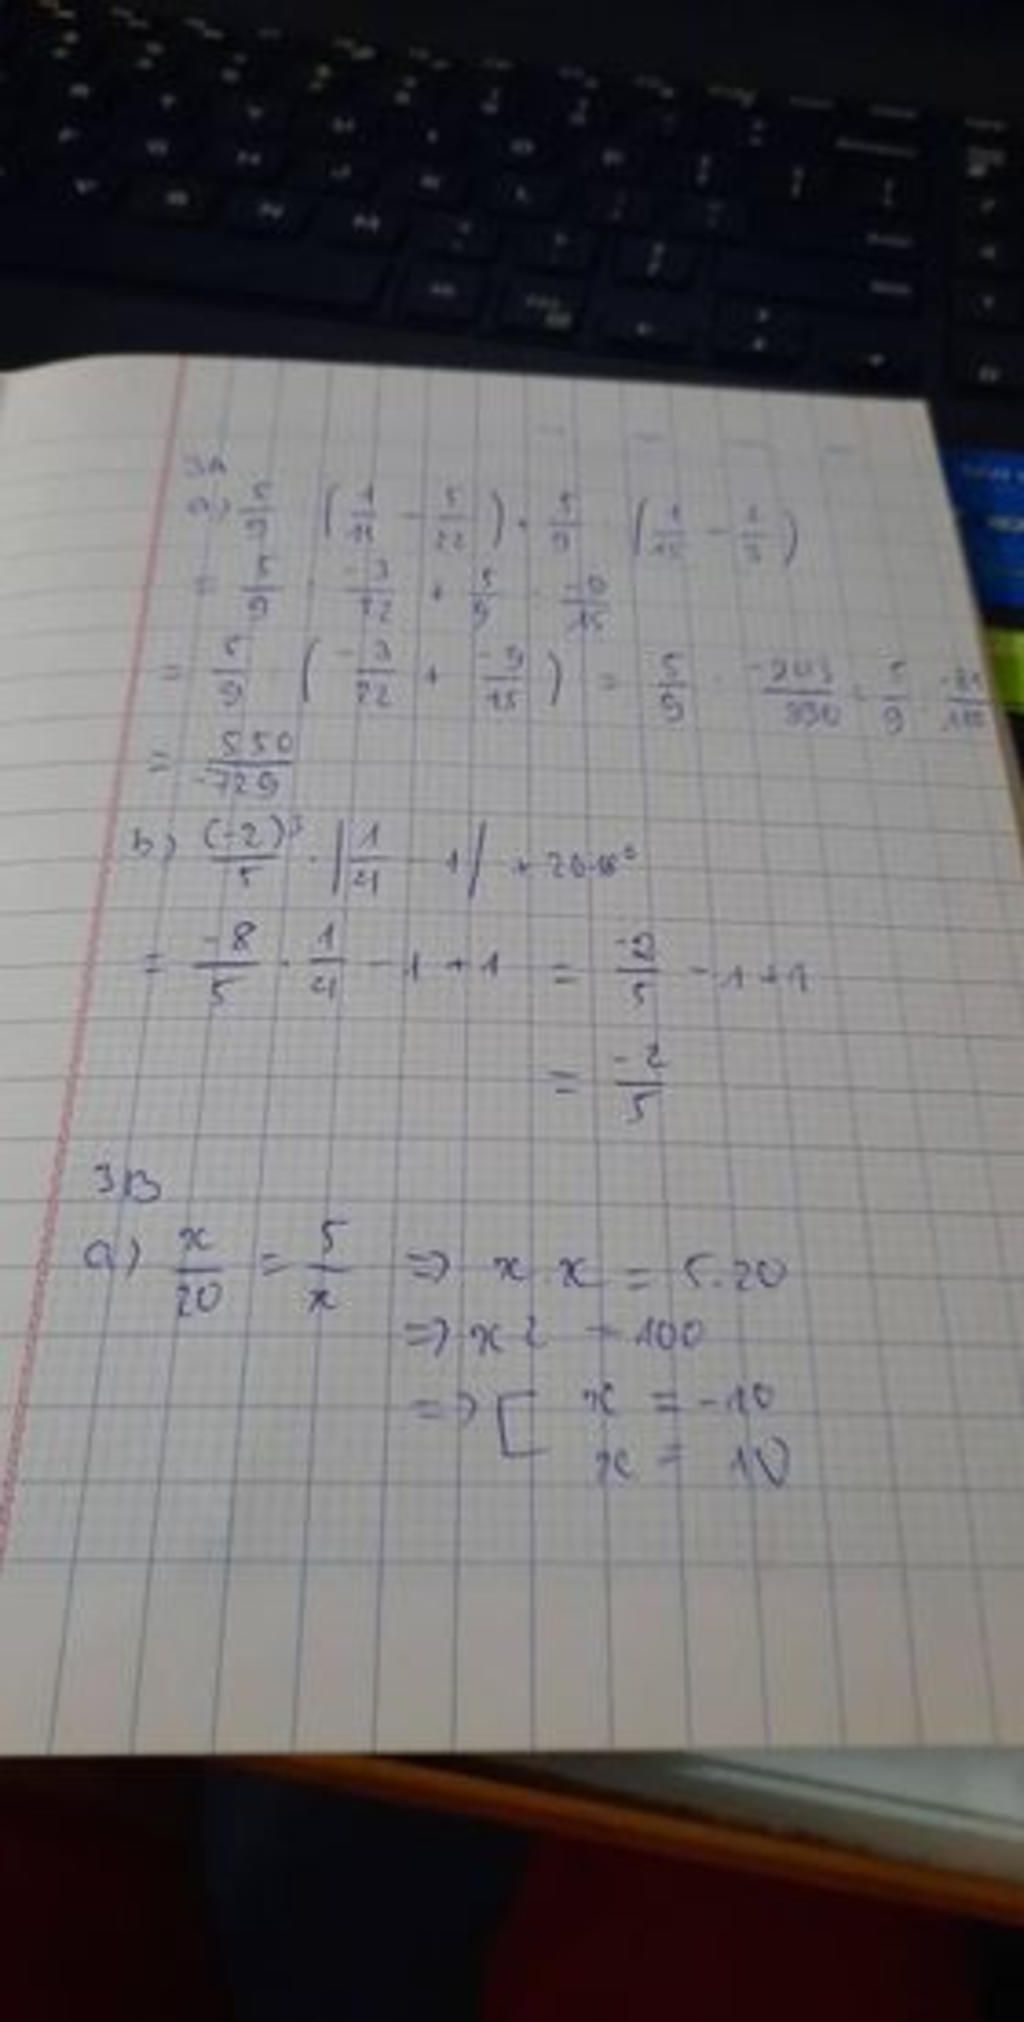 3A
a) 5/9 (1/11 - 5/22) + 5/9 (1/15 - 2/3)
= 5/9 · -3/22 + 5/9 · -9/15
= 5/9 (-3/22 + -9/15) = 5/9 · -243/330 = 5/9 · -81/110
= 550/-729
b) (-2)³/5 · |1/4 - 1| +
= -8/5 · 1/4 - 1 + 1 = -2/5 - 1 + 1
= -2/5
3B
a) x/20 = 5/x => x x = 5.20
=> x2 = 100
=> [ x = -10
x = 10